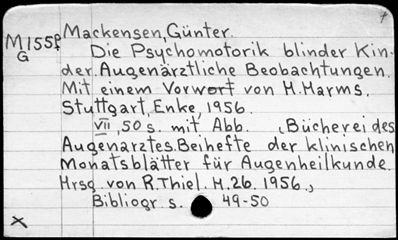 Mackensen, Günter.
M155f
G
Die Psychomotorik blinder Kin-
der. Augenärztliche Beobachtungen.
Mit einem Vorwort von H. Harms.
Stuttgart, Enke, 1956.
VII, 50 s. mit Abb. (Bücherei des
Augenarztes. Beihefte der klinischen
Monatsblätter für Augenheilkunde.
Hrsg. von R. Thiel. H. 26. 1956.)
Bibliogr. s. 49-50
x